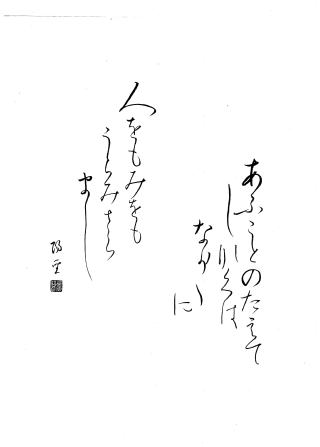 あふことのたえて
しなくは
なか〱
に
人をもみをも
うらみさら
まし